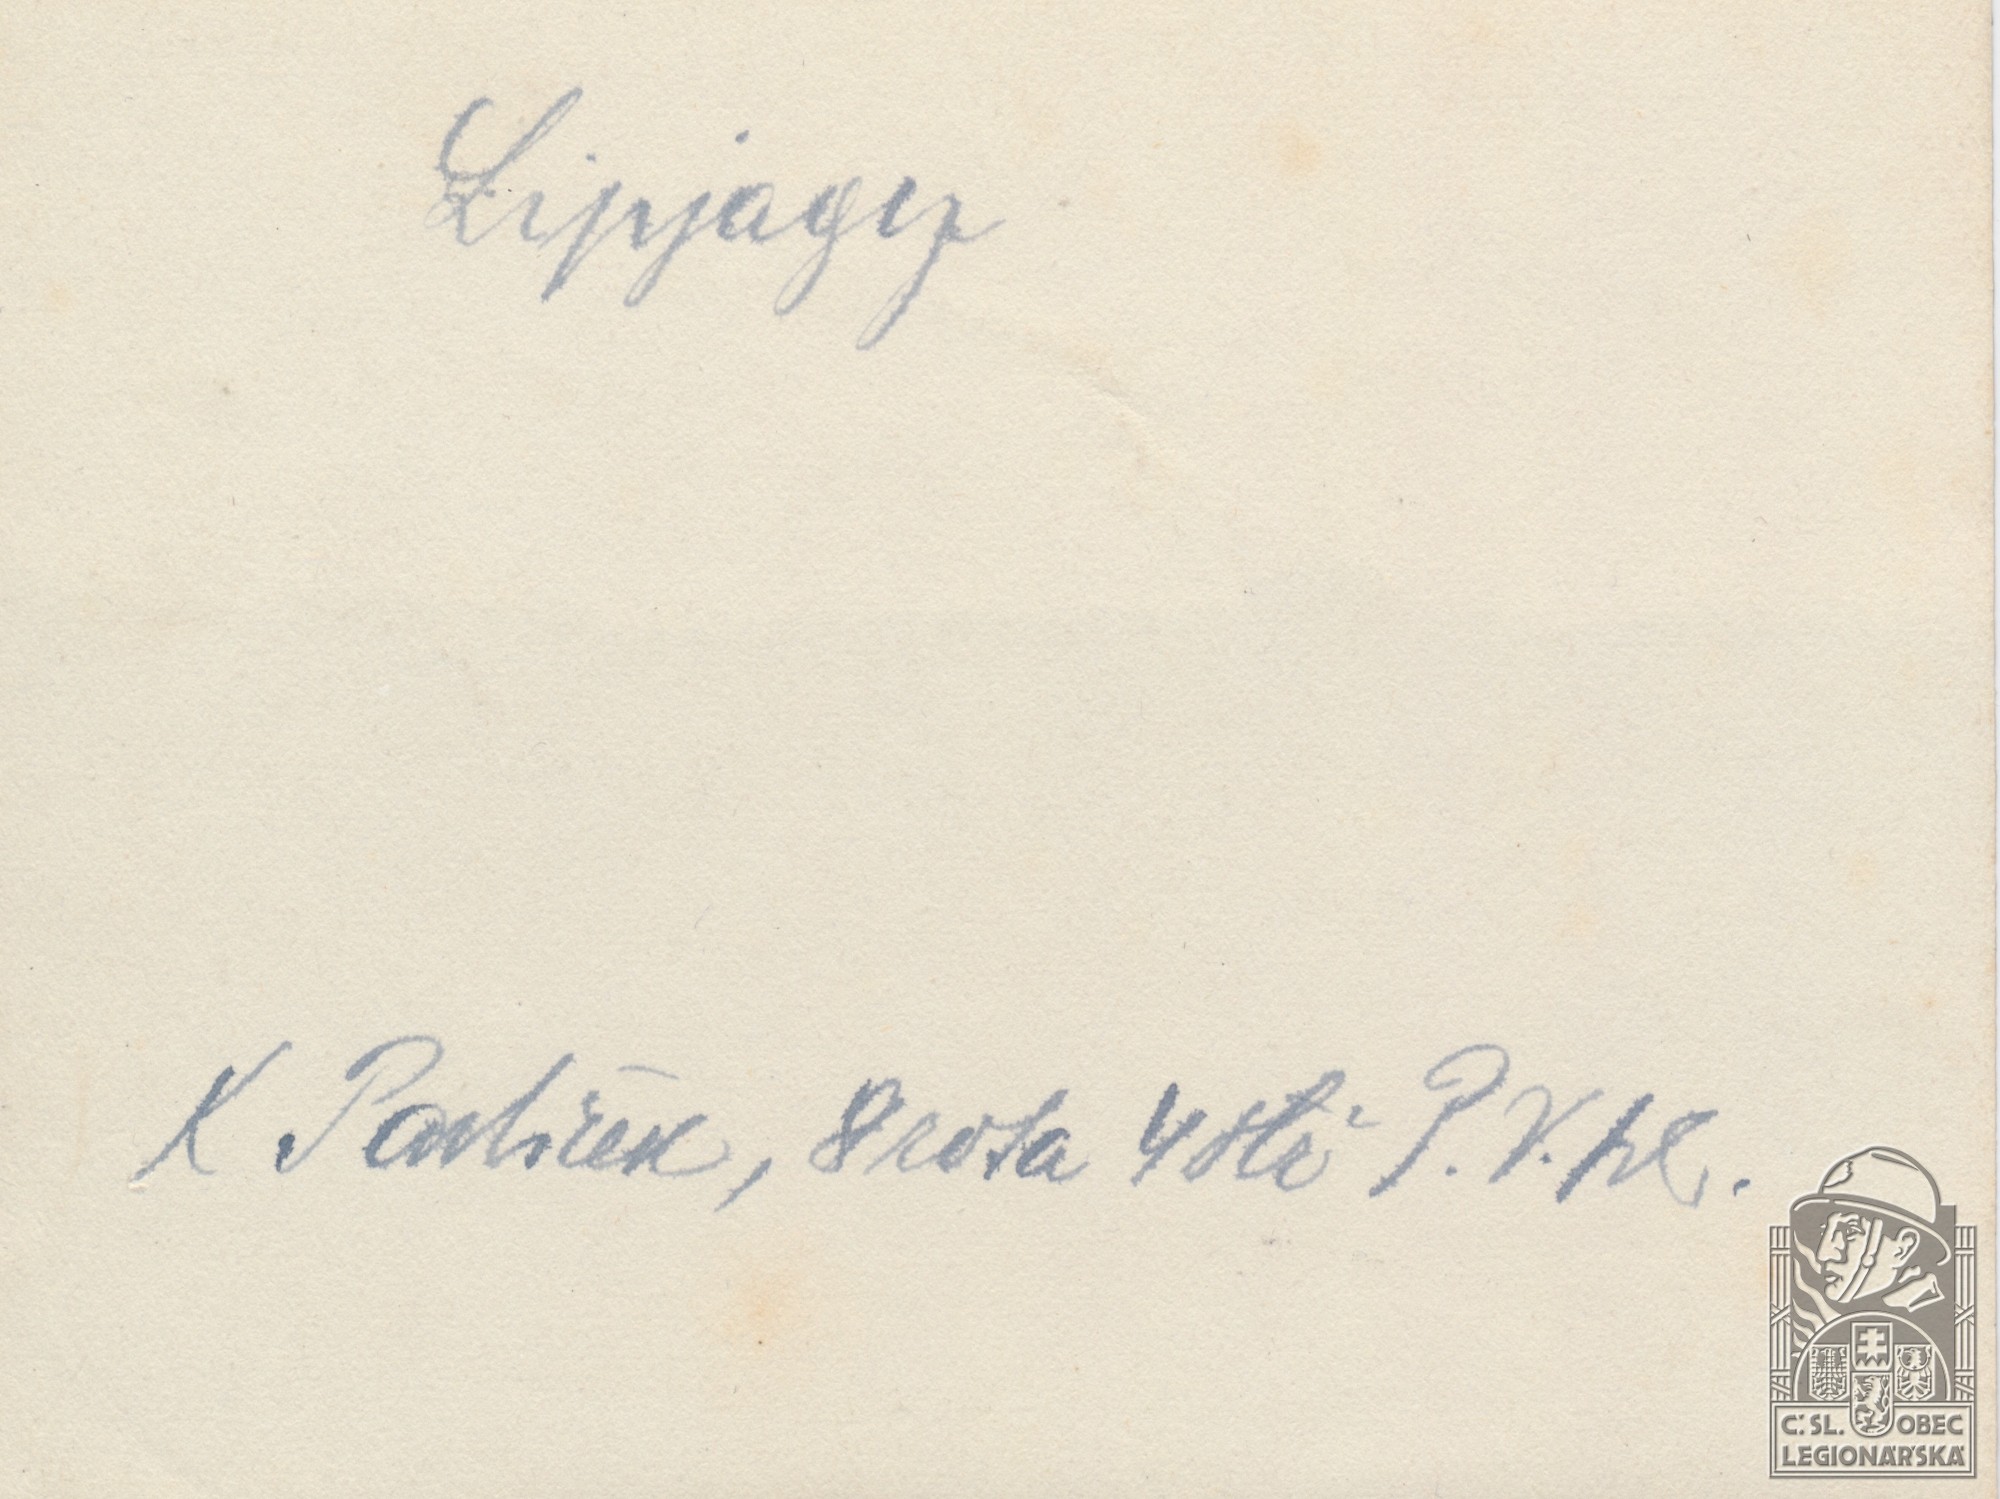 Lipjagy
K Pavlíček, 8 rota 4 stř P. V. pl.
Č.SL. OBEC
LEGIONÁŘSKÁ